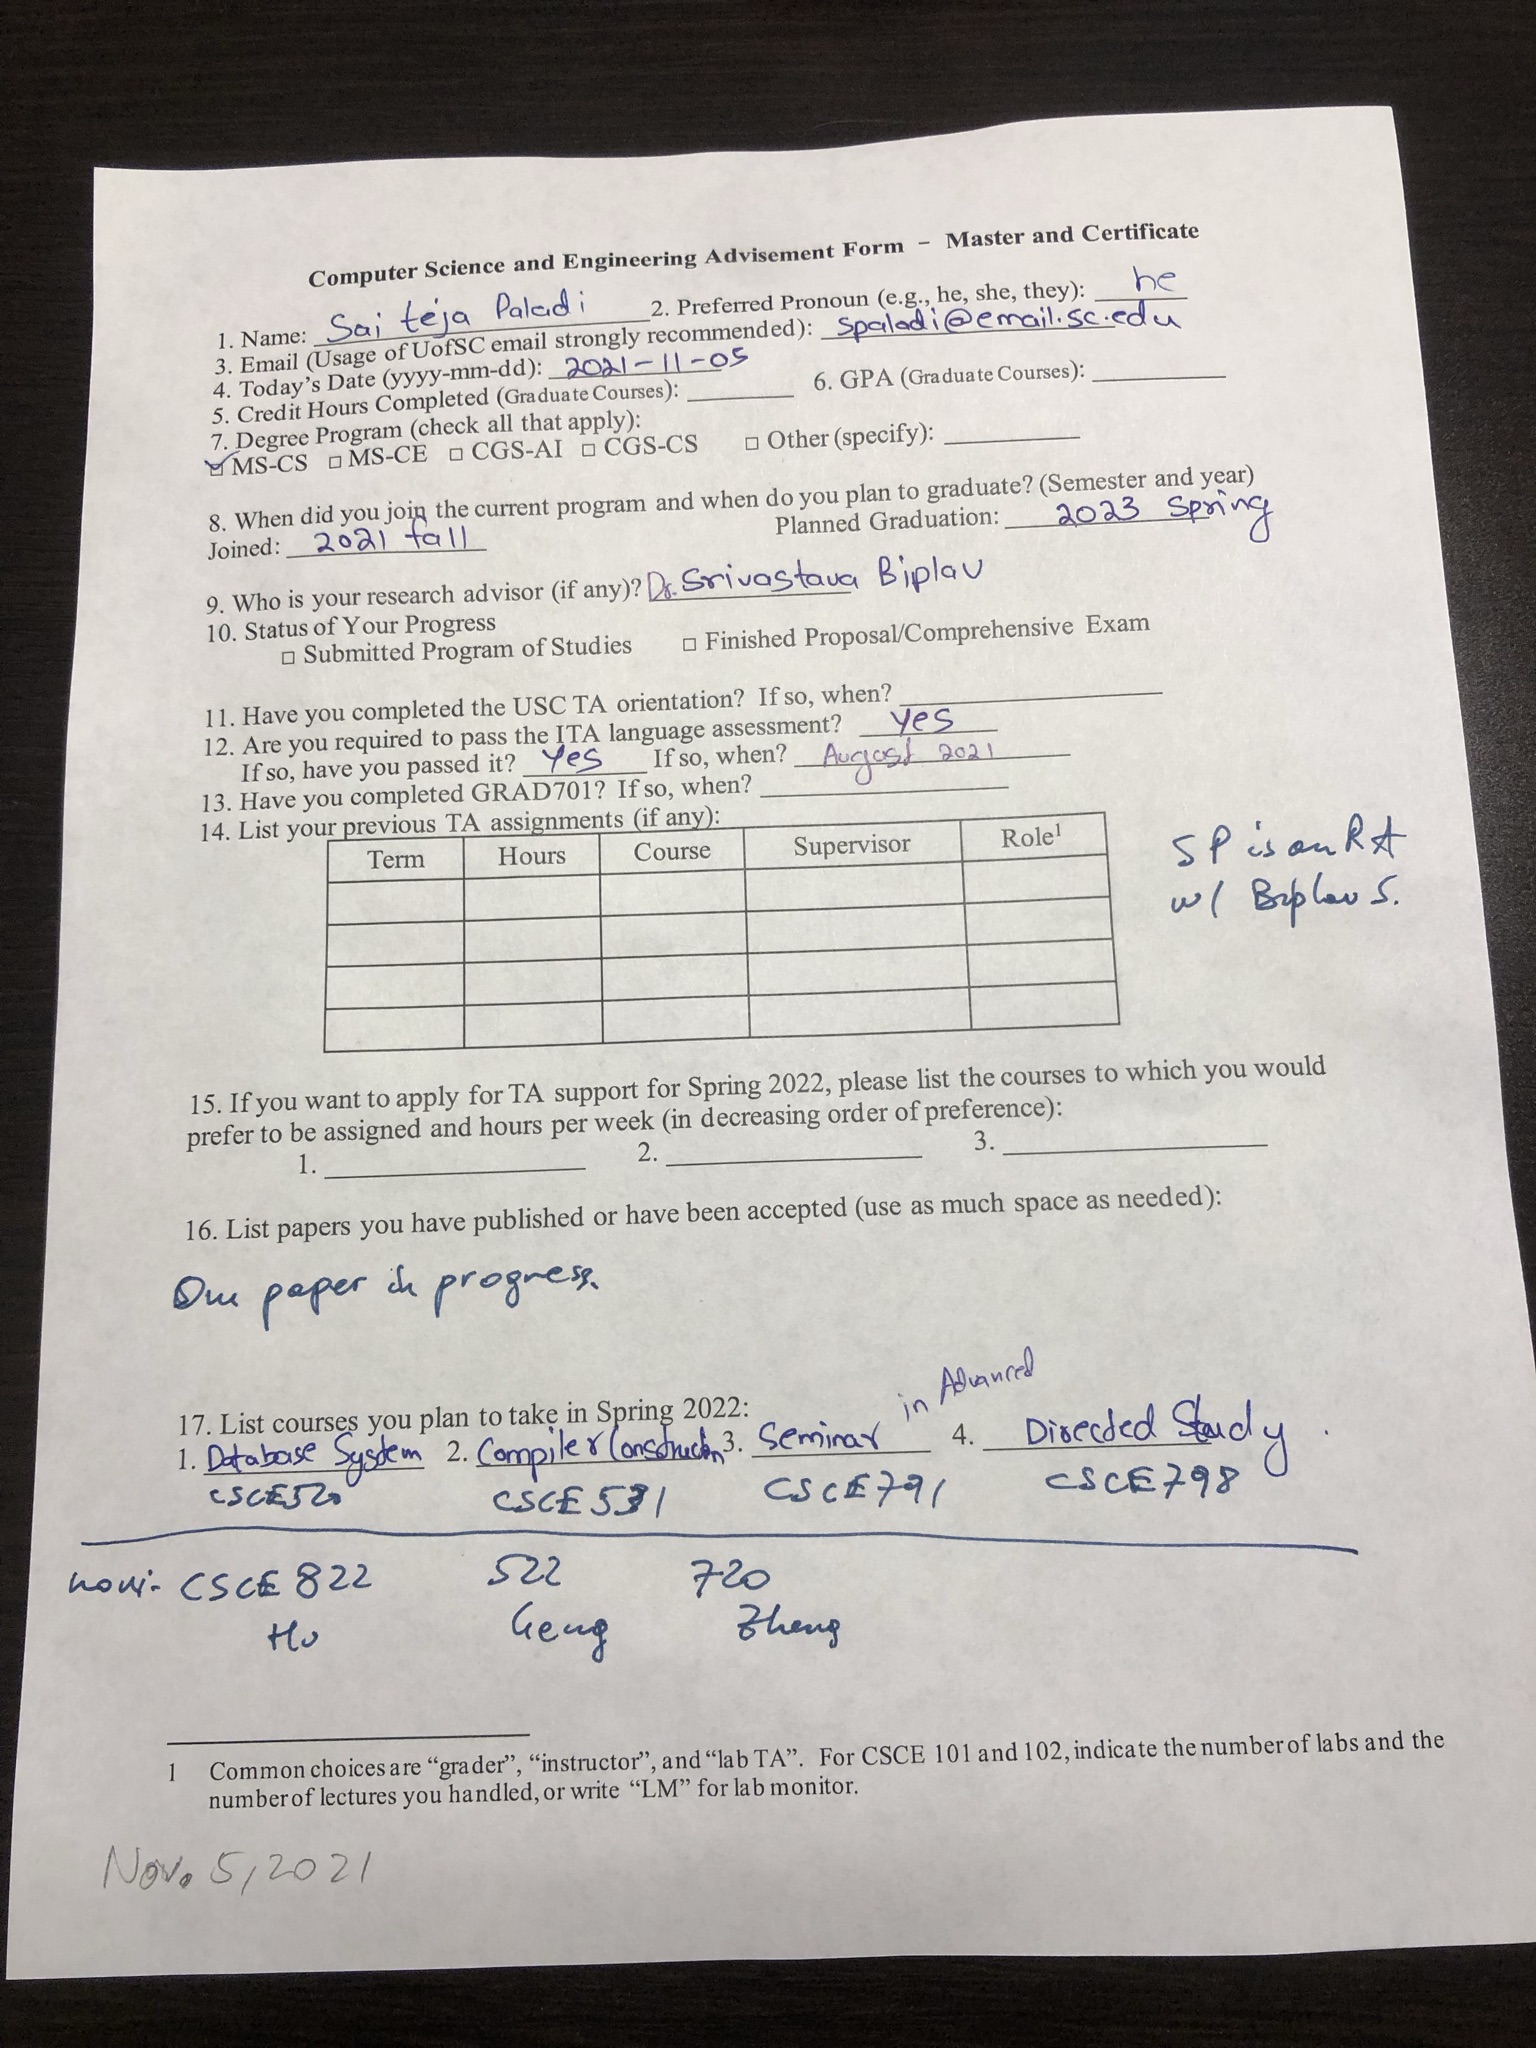 Computer Science and Engineering Advisement Form – Master and Certificate
1. Name: Sai teja Paladi 2. Preferred Pronoun (e.g., he, she, they): he
3. Email (Usage of UofSC email strongly recommended): spaladi@email.sc.edu
4. Today's Date (yyyy-mm-dd): 2021-11-05
5. Credit Hours Completed (Graduate Courses): 6. GPA (Graduate Courses):
7. Degree Program (check all that apply):
☑ MS-CS □ MS-CE □ CGS-AI □ CGS-CS □ Other (specify):
8. When did you join the current program and when do you plan to graduate? (Semester and year)
Joined: 2021 fall Planned Graduation: 2023 Spring
9. Who is your research advisor (if any)? Dr. Srivastava Biplav
10. Status of Your Progress
□ Submitted Program of Studies □ Finished Proposal/Comprehensive Exam
11. Have you completed the USC TA orientation? If so, when?
12. Are you required to pass the ITA language assessment? yes
If so, have you passed it? Yes If so, when? August 2021
13. Have you completed GRAD701? If so, when?
14. List your previous TA assignments (if any):
Term Hours Course Supervisor Role1
SP is an RA
w/ Biplav S.
15. If you want to apply for TA support for Spring 2022, please list the courses to which you would
prefer to be assigned and hours per week (in decreasing order of preference):
1. 2. 3.
16. List papers you have published or have been accepted (use as much space as needed):
One paper in progress.
17. List courses you plan to take in Spring 2022:
in Advanced
1. Database System 2. Compiler Construction 3. Seminar 4. Directed Study.
CSCE520 CSCE531 CSCE791 CSCE798
CSCE 822 522 720
Hu Geng Zheng
1 Common choices are “grader”, “instructor”, and “lab TA”. For CSCE 101 and 102, indicate the number of labs and the
number of lectures you handled, or write “LM” for lab monitor.
Nov. 5, 2021